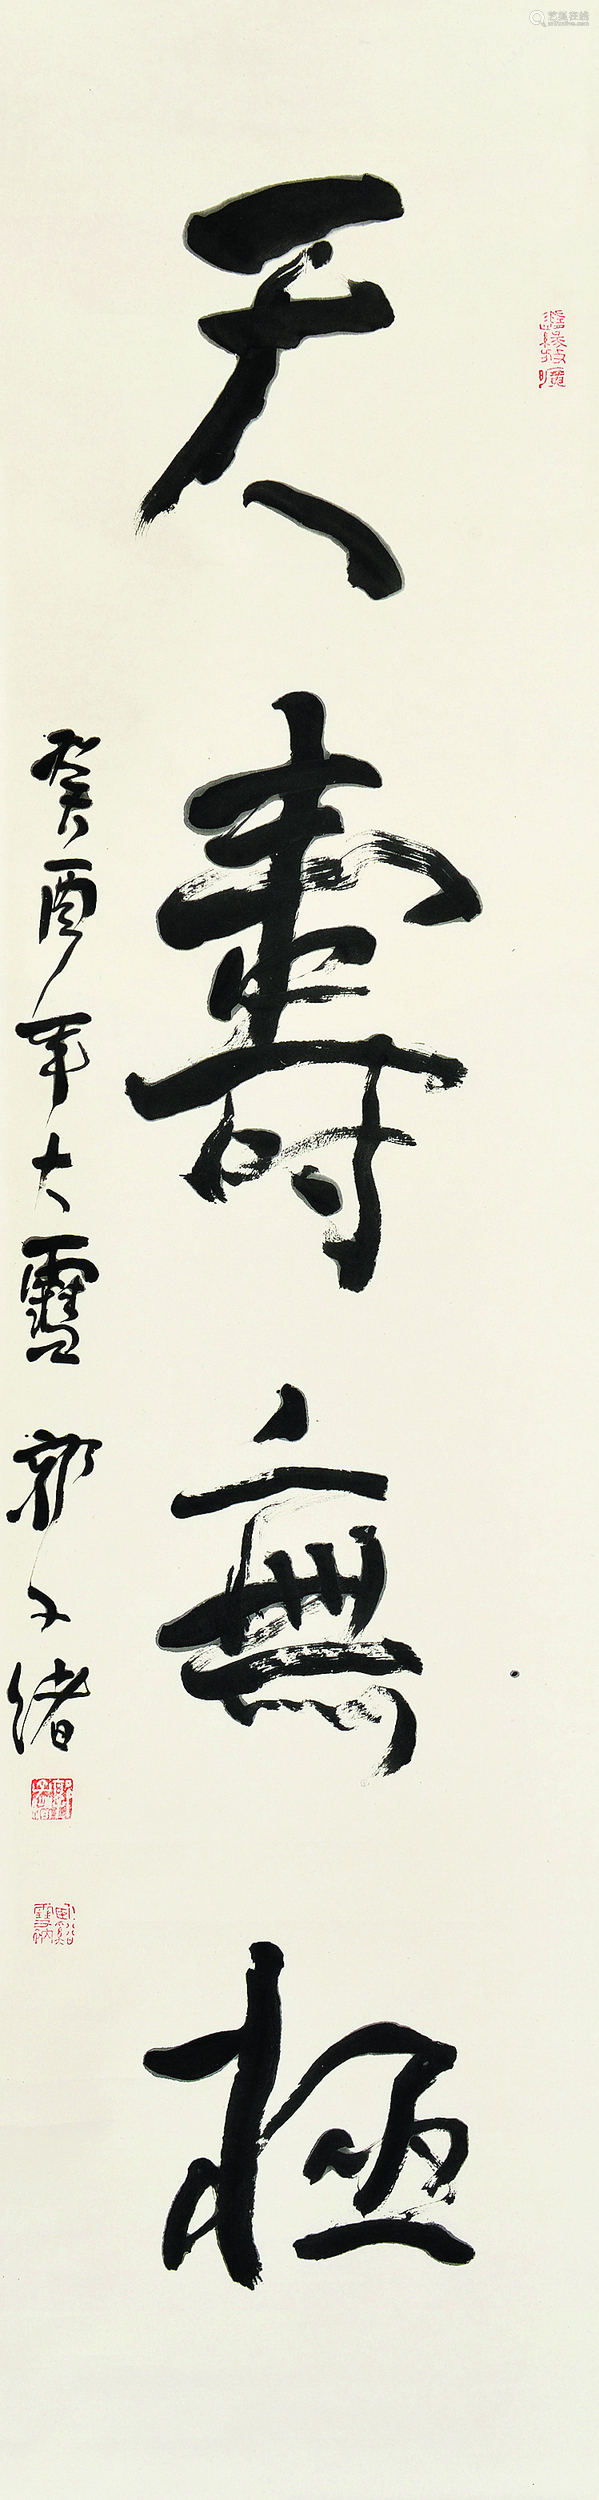 天壽無極
癸酉年大雪 郭子緒
艺狐在线